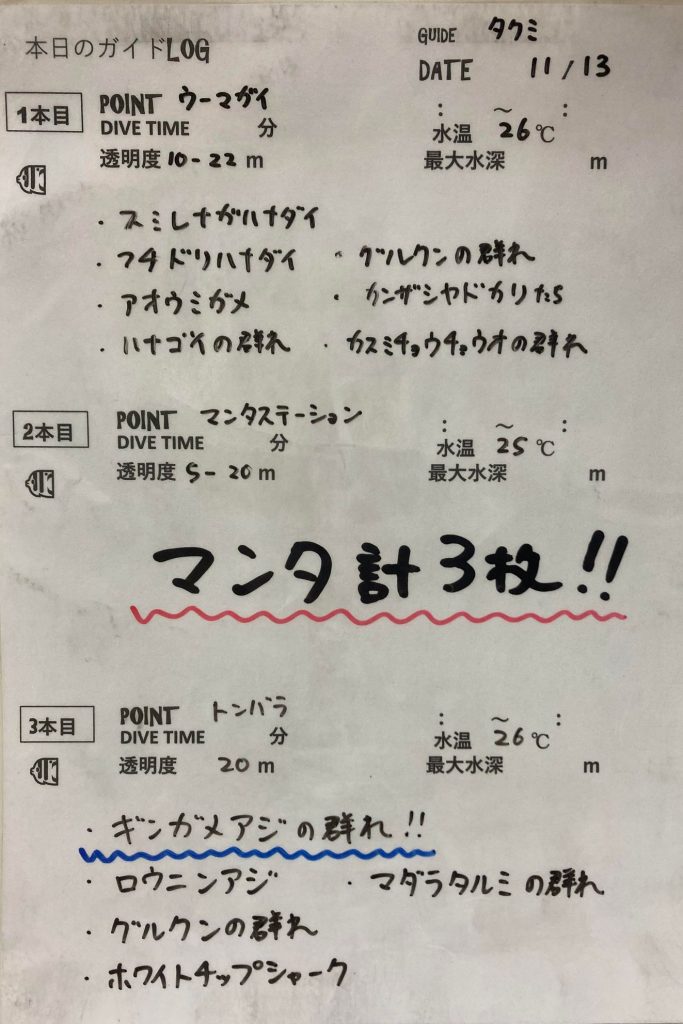 本日のガイドLOG
GUIDE タクミ
DATE 11/13
1本目 POINT ウーマガイ : ～ :
DIVE TIME 分 水温 26℃
透明度 10-22 m 最大水深 m
・スミレナガハナダイ
・フチドリハナダイ ・グルクンの群れ
・アオウミガメ ・カンザシヤドカリたち
・ハナゴイの群れ ・カスミチョウチョウオの群れ
2本目 POINT マンタステーション : ～ :
DIVE TIME 分 水温 25℃
透明度 5-20 m 最大水深 m
マンタ計3枚!!
3本目 POINT トンバラ : ～ :
DIVE TIME 分 水温 26℃
透明度 20 m 最大水深 m
・ギンガメアジの群れ!!
・ロウニンアジ ・マダラタルミの群れ
・グルクンの群れ
・ホワイトチップシャーク